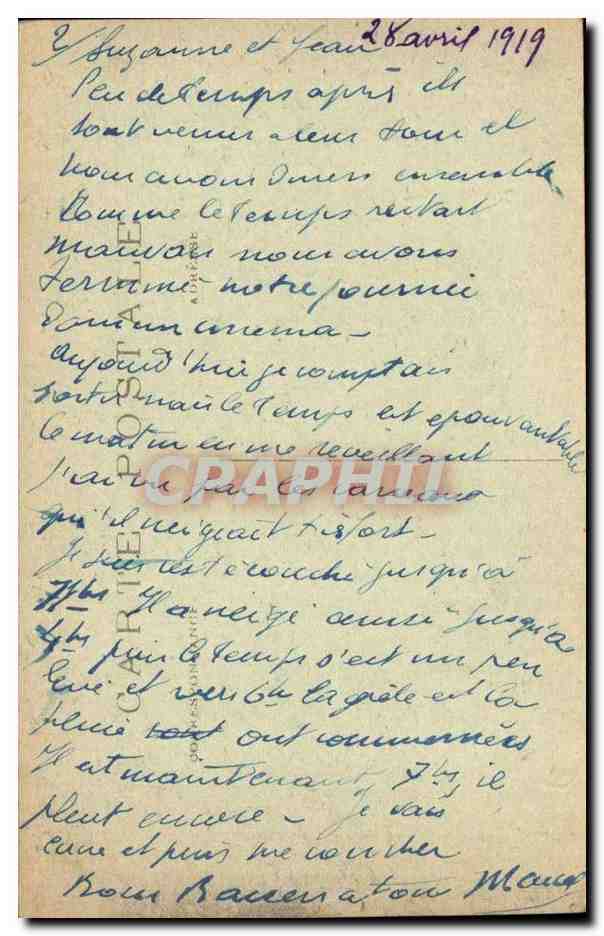 2/ Suzanne et Jean 28 avril 1919
Peu de temps après ils
sont venus à leur tour et
nous avons dîners ensemble
Comme le temps restart
mauvais nous avons
terminé notre journée
dans un cinema -
Aujourd'hui je comptais
sortir mais le temps est epouvantable
le matin en me réveillant
j'ai vu par les carreaux
qu'il neigeait très fort -
Je suis resté couché jusqu'à
7hrs Il a neigé aussi jusqu'à
4hrs puis le temps s'est un peu
levé et vers 6h la grêle est la
pluie sont ont commencées
Il est maintenant 7hrs il
pleut encore - Je vais
et puis me coucher
Bons Baisers a tous
CARTE POSTALE
CORRESPONDANCE
ADRESSE
CPAPHIL